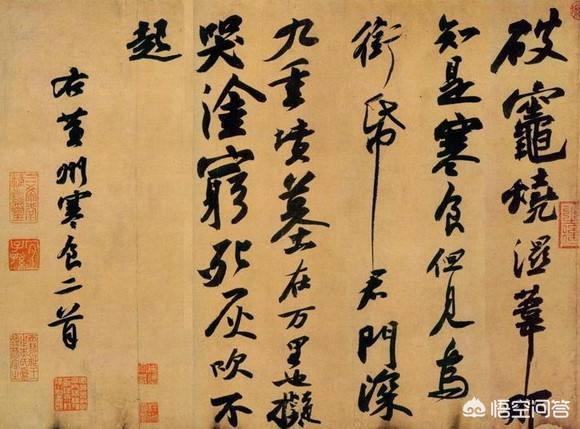 破竈燒濕葦那
知是寒食但見烏
銜帋君門深
九重墳墓在万里也擬
哭塗窮死灰吹不
起
右黃州寒食二首
悟空问答